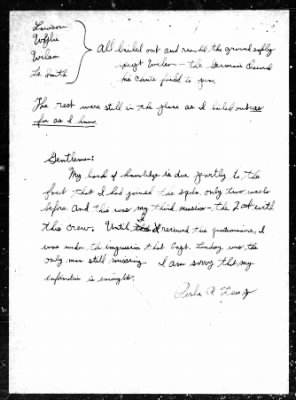 Lawson
Wylie
Wilson
Lt. Smith
All bailed out and reached the ground safely
except Wilson — the Germans claimed
his chute failed to open.
The rest were still in the plane as I bailed out as
far as I know.
Gentlemen:
My lack of knowledge is due partly to the
fact that I had joined the sqdn. only two weeks
before and this was my third mission — the 2nd with
this crew. Until I received the questionnaire, I
was under the impression that Capt. Lindsey was the
only man still missing. I am sorry that my
information is